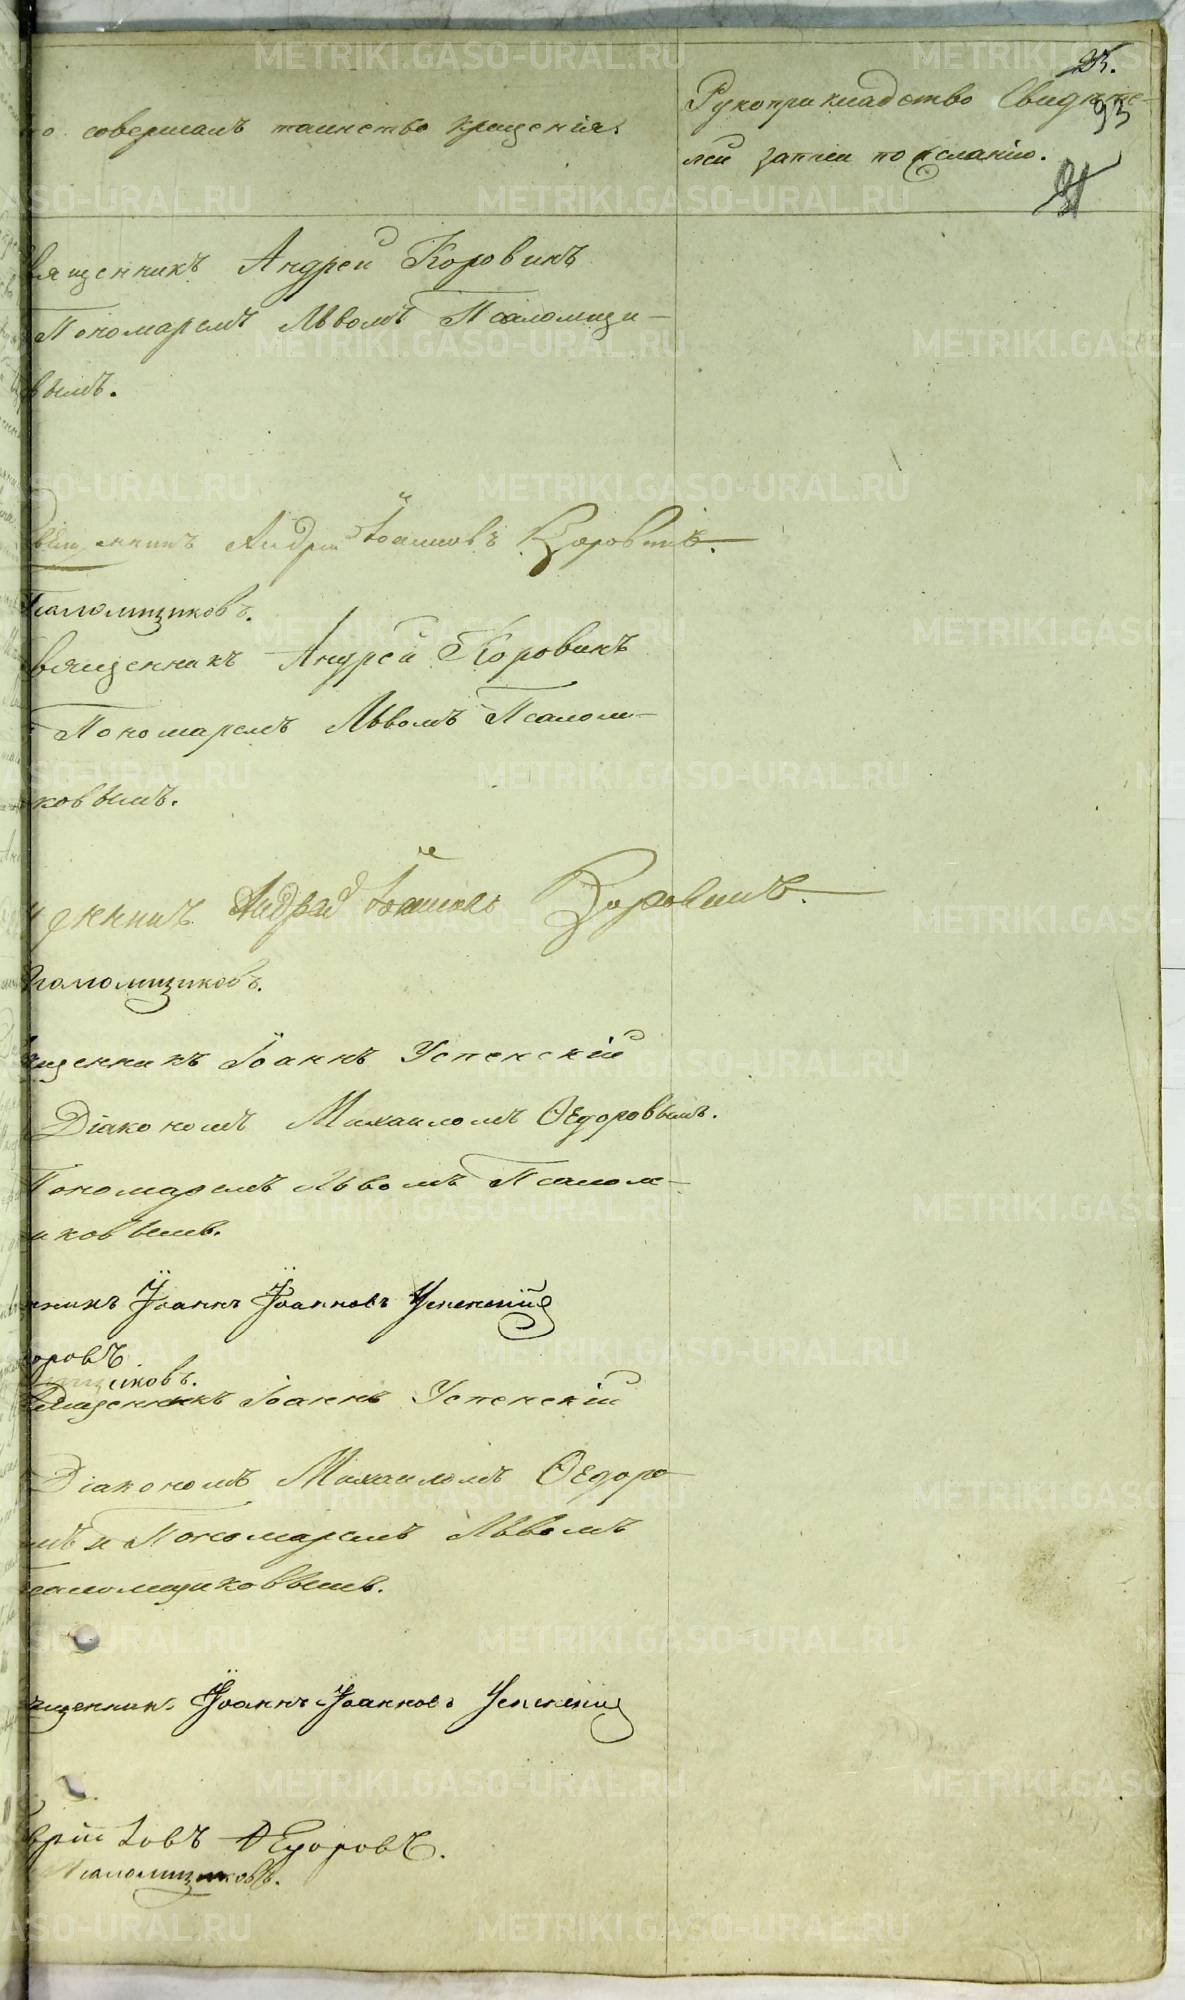 25.
93
то совершалъ таинство крещенія.
Рукоприкладство Свидѣте-
лей записи по желанію.
вященникъ Андрей Коровинъ
Пономаремъ Львомъ Псаломщи-
вымъ.
Священникъ Андрей Іоанновъ Коровинъ.
Псаломщиковъ.
вященникъ Андрей Коровинъ
Пономаремъ Львомъ Псалом-
ковымъ.
щенникъ Андрей Іоанновъ Коровинъ.
Псаломщиковъ.
ященникъ Іоаннъ Успенскій
Діакономъ Михаиломъ Ѳедоровымъ.
Пономаремъ Львомъ Псалом-
иковымъ.
нникъ Іоаннъ Іоанновъ Успенскій
доровъ
щиковъ.
Священникъ Іоаннъ Успенскій
Діакономъ Михаиломъ Ѳедоро-
мъ и Пономаремъ Львомъ
Псаломщиковымъ.
ященникъ Іоаннъ Іоанновъ Успенскій
Іовъ Ѳедоровъ.
Псаломщиковъ.
METRIKI.GASO-URAL.RU